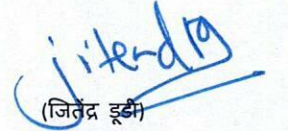 jitendra
(जितेंद्र डूडी)